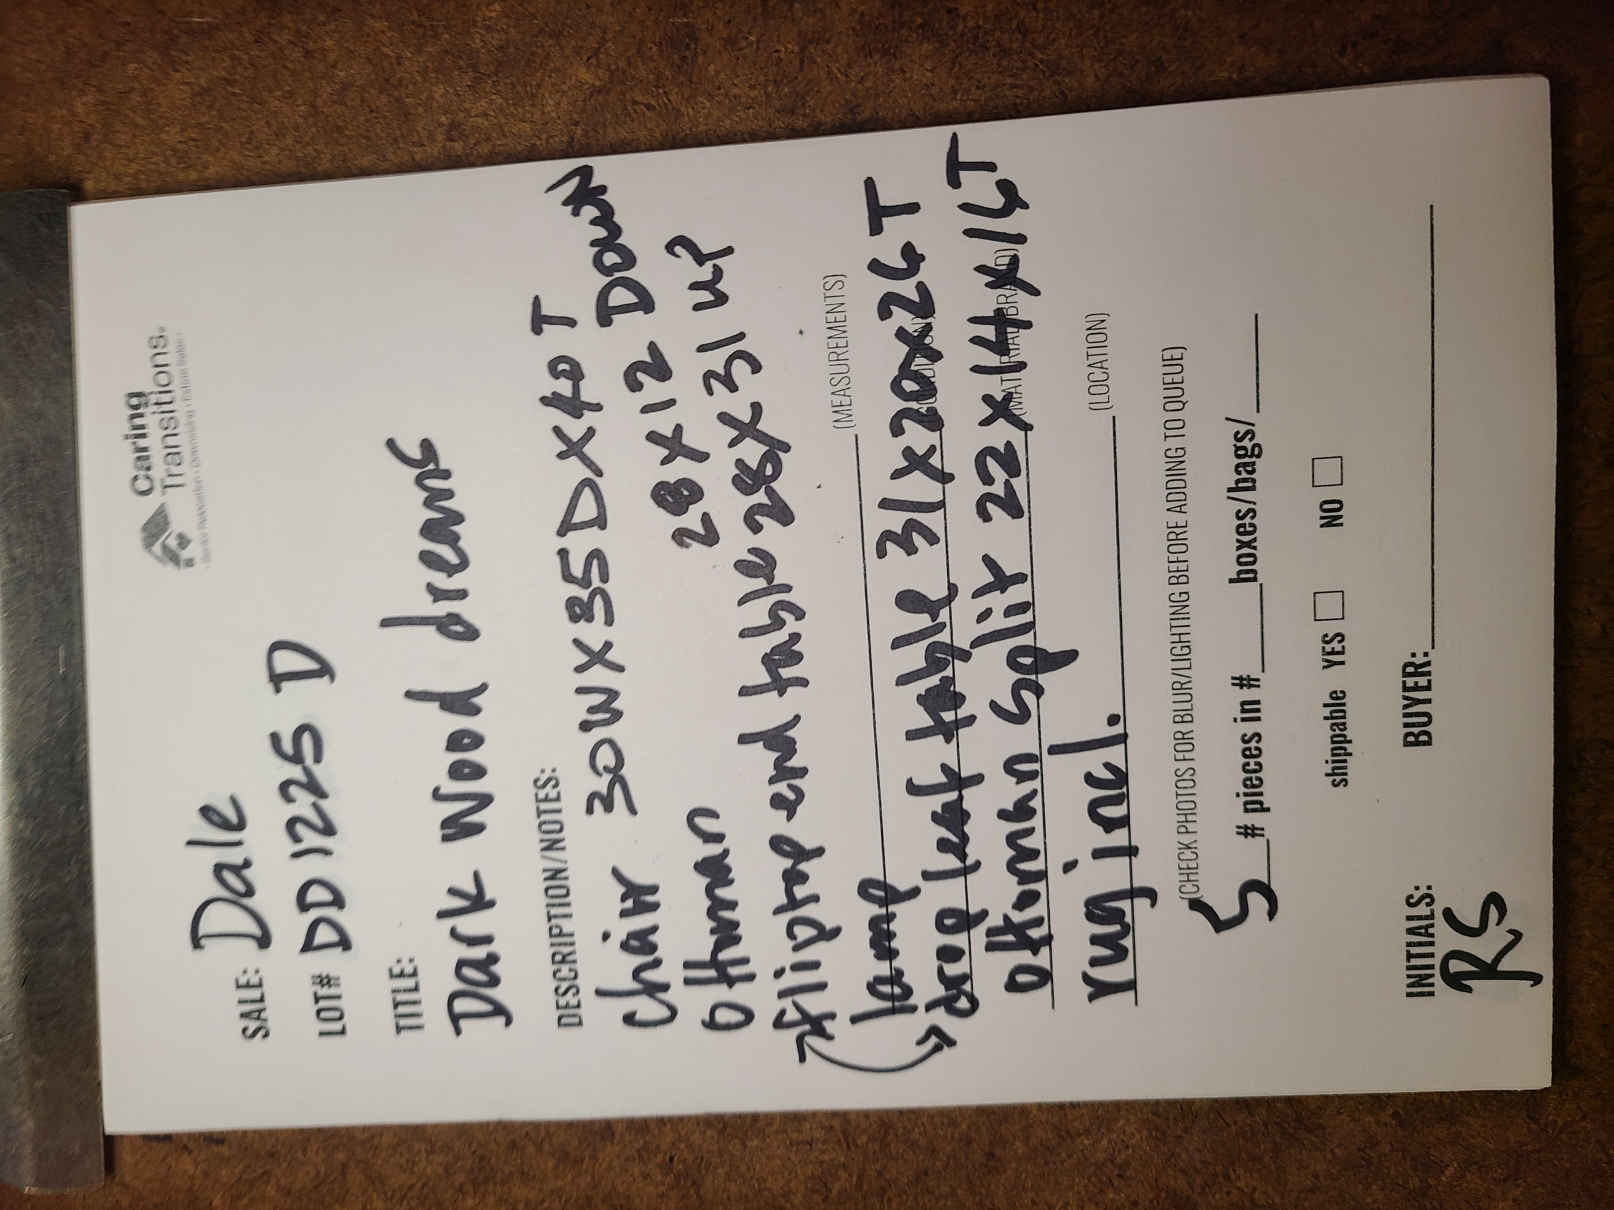 Caring
Transitions.
SALE: Dale
LOT# DD1225 D
TITLE:
Dark Wood dreams
DESCRIPTION/NOTES:
Chair 30W X 35D X 40T
Ottman 28 X 12 DOWN
fliptop end table 28 X 31 UP
(MEASUREMENTS)
lamp
drop leaf table 31 x 20 x 26 T
Ottoman split 22 x 14 x 16T
rug incl.
(LOCATION)
(CHECK PHOTOS FOR BLUR/LIGHTING BEFORE ADDING TO QUEUE)
5 # pieces in # boxes/bags/
shippable YES NO
INITIALS: BUYER:
RS